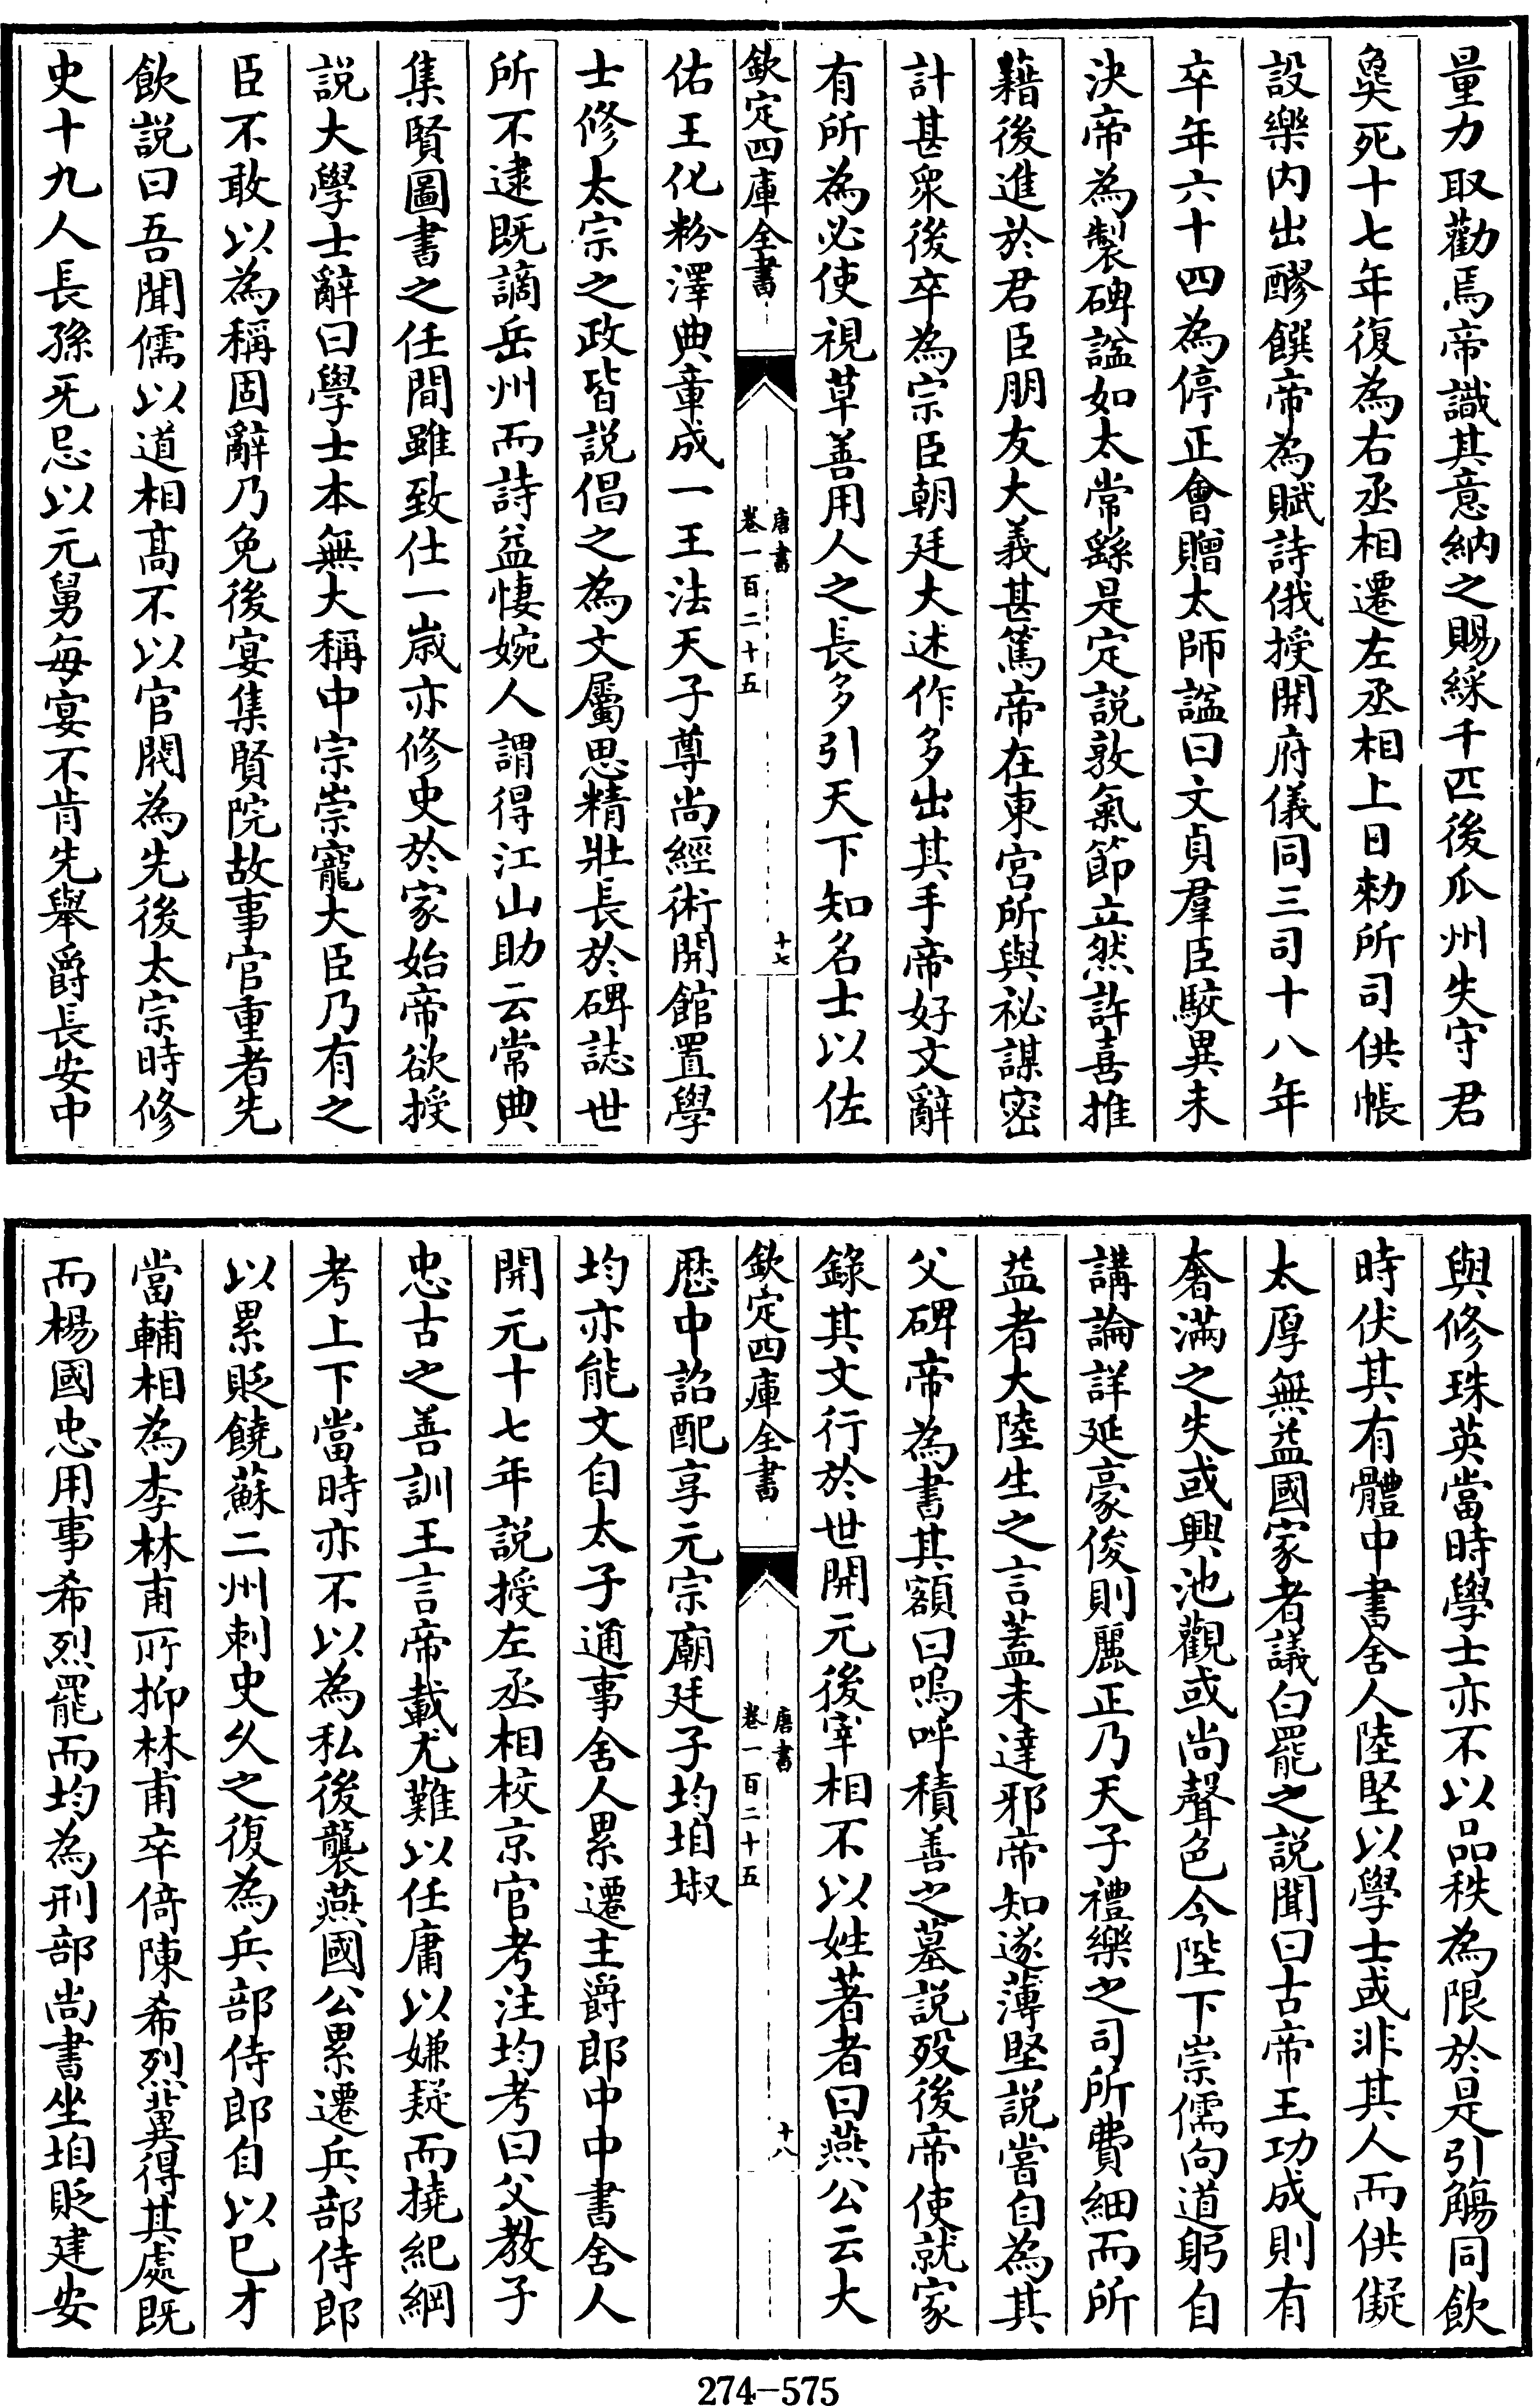 量力取勸焉帝識其意納之賜綵千匹後瓜州失守君
㚟死十七年復為右丞相遷左丞相上日勅所司供帳
設樂内出醪饌帝為賦詩俄授開府儀同三司十八年
卒年六十四為停正會贈太師諡曰文貞羣臣駮異未
決帝為製碑諡如太常繇是定説敦氣節立然許喜推
藉後進於君臣朋友大義甚篤帝在東宮所與祕謀密
計甚衆後卒為宗臣朝廷大述作多出其手帝好文辭
有所為必使視草善用人之長多引天下知名士以佐
欽定四庫全書
唐書
卷一百二十五
十七
佑王化粉澤典章成一王法天子尊尚經術開館置學
士修太宗之政皆説倡之為文屬思精壯長於碑誌世
所不逮既謫岳州而詩益悽婉人謂得江山助云常典
集賢圖書之任間雖致仕一嵗亦修史於家始帝欲授
説大學士辭曰學士本無大稱中宗崇寵大臣乃有之
臣不敢以為稱固辭乃免後宴集賢院故事官重者先
飲説曰吾聞儒以道相髙不以官閥為先後太宗時修
史十九人長孫无忌以元舅每宴不肯先舉爵長安中
與修珠英當時學士亦不以品秩為限於是引觴同飲
時伏其有體中書舍人陸堅以學士或非其人而供儗
太厚無益國家者議白罷之説聞曰古帝王功成則有
奢滿之失或興池觀或尚聲色今陛下崇儒向道躬自
講論詳延豪俊則麗正乃天子禮樂之司所費細而所
益者大陸生之言蓋未達邪帝知遂薄堅説嘗自為其
父碑帝為書其額曰嗚呼積善之墓説殁後帝使就家
錄其文行於世開元後宰相不以姓著者曰燕公云大
欽定四庫全書
唐書
卷一百二十五
十八
厯中詔配享元宗廟廷子均垍埱
均亦能文自太子通事舍人累遷主爵郎中中書舍人
開元十七年説授左丞相校京官考注均考曰父教子
忠古之善訓王言帝載尤難以任庸以嫌疑而撓紀綱
考上下當時亦不以為私後襲燕國公累遷兵部侍郎
以累貶饒蘇二州刺史久之復為兵部侍郎自以已才
當輔相為李林甫所抑林甫卒倚陳希烈冀得其處既
而楊國忠用事希烈罷而均為刑部尚書坐垍貶建安
274-575